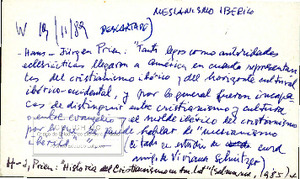 MESIANISMO IBERICO
W 19/11/89 DESCARTADO
- Hans-Jürgen Prien: "Tanto legos como autoridades
eclesiásticas llegaron a América en cuanto representan
tes del cristianismo ibérico y del horizonte cultural
ibérico-occidental, y por lo general fueron incapa
ces de distinguir entre cristianismo y cultura
entre evangelio y el molde ibérico del cristianismo
por lo que se puede hablar de "mesianismo
ibérico"
citado en estudio de cand
Viviana Schnitzer
H-J, Prien: "Historia del Cristianismo en Am. Lat" (Salamanca, 1985)